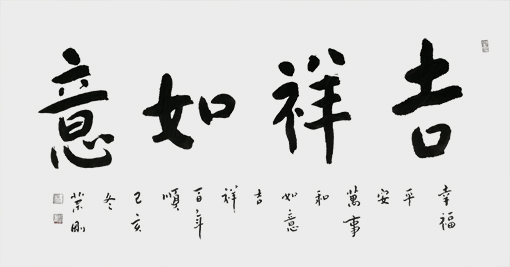 吉祥如意
幸福
平
安
萬事
和
如意
吉
祥
百年
順
己亥
冬
榮剛